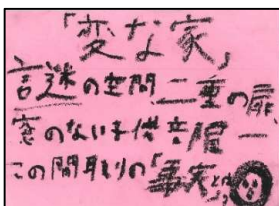 「変な家」
謎の空間、二重の扉、
窓のない子供部屋―
この間取りの「事実とは」